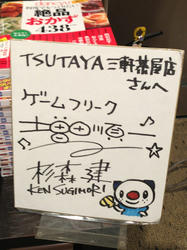 絶品
おかず
438
TSUTAYA三軒茶屋店
さんへ
ゲームフリーク
杉森建
KEN SUGIMORI